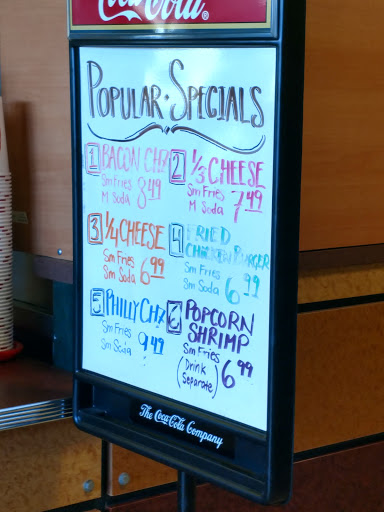 Coca-Cola®
POPULAR · SPECIALS
1 BACON CHZ
Sm Fries
M Soda
8.49
2 1/3 CHEESE
Sm Fries
M Soda
7.49
3 1/4 CHEESE
Sm Fries
Sm Soda
6.99
4 FRIED
CHICKEN BURGER
Sm Fries
Sm Soda
6.99
5 PHILLY CHZ
Sm Fries
Sm Soda
9.49
6 POPCORN
SHRIMP
Sm Fries
(Drink
Separate)
6.99
The Coca-Cola Company